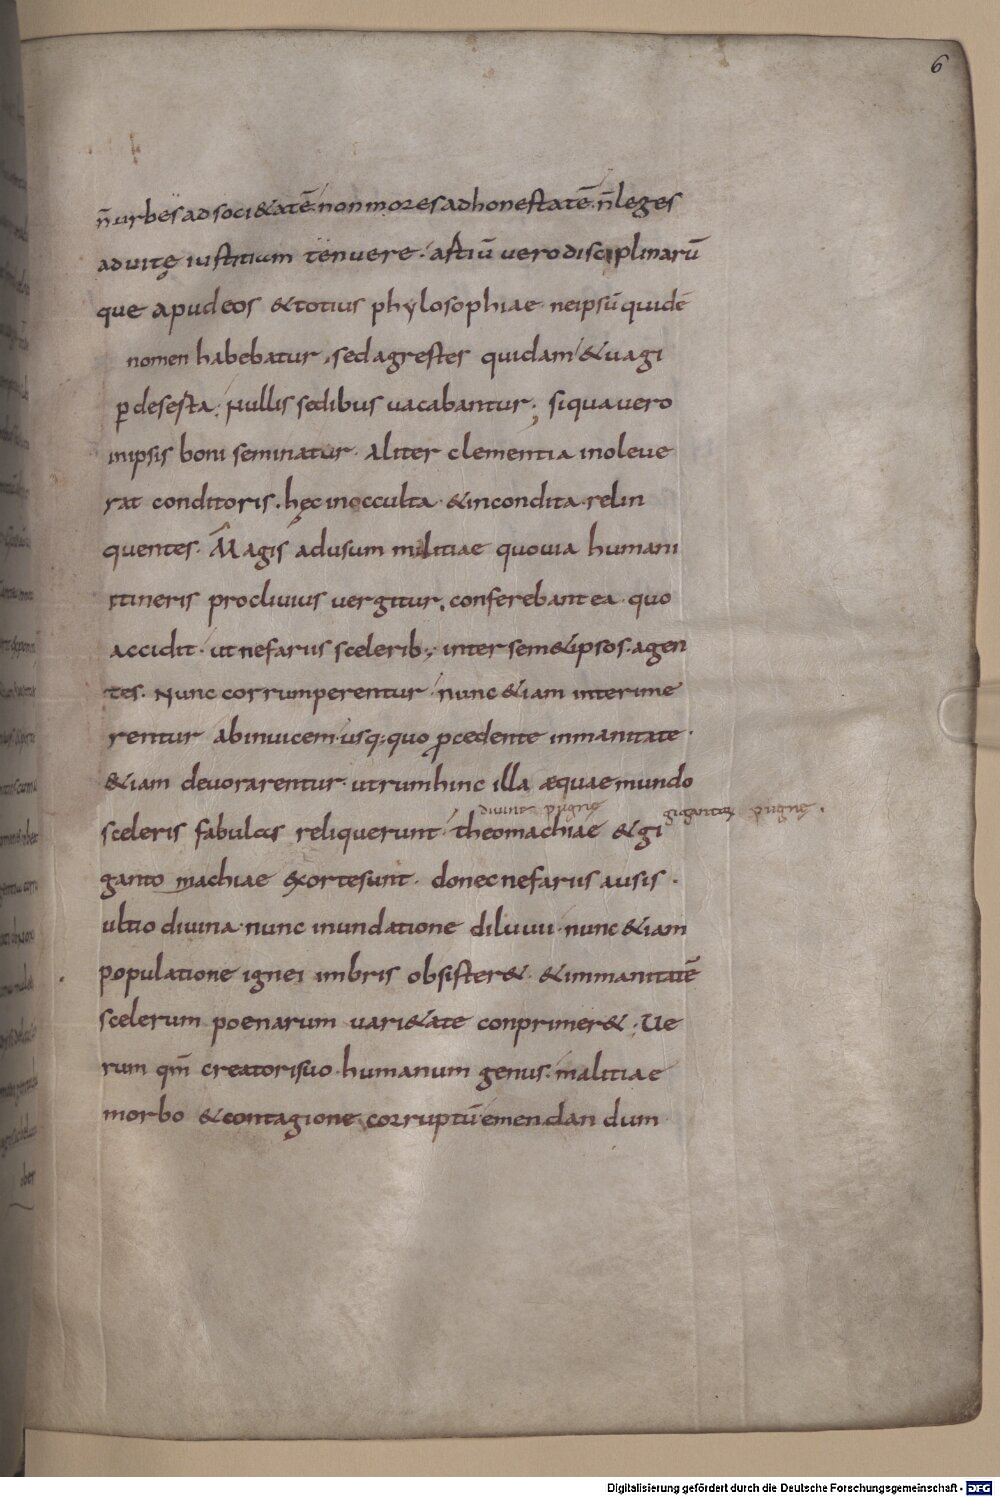 6
n̄ urbes ad soci&atē non mores ad honestatē n̄ leges
ad uitę iustitium tenuere · astiū uero disciplinarū
que apud eos & totius phylosophiae ne ipsū quidē
nomen habebatur · sed agrestes quidam & uagi
p deserta · Nullis sedibus uacabantur ; si qua uero
in ipsis boni seminatur · aliter clementia inoleue
rat conditoris · hęc in occulta & incondita relin
quentes · Magis ad usum militiae quo uia humani
itineris procliuius uergitur, conferebant ea quo
accidit · ut nefariis scelerib; inter sem&ipsos · agen
tes · Nunc corrumperentur nunc &iam interime
rentur abinuicem usq; quo pcedente inmanitate ·
&iam deuorarentur · utrum hinc illa aequae mundo
diuine pugnę gigantū pugnę ·
sceleris fabulas reliquerunt theomachiae & gi
ganto machiae &xorte sunt · donec nefariis ausis ·
ultio diuina · nunc inundatione diluuii · nunc &iam
populatione ignei imbris obsister& · & immanitatē
scelerum poenarum uari&ate conprimer& · Ue
rum qm̄ creatori suo humanum genus · malitiae
morbo & contagione corruptū emendandum
Digitalisierung gefördert durch die Deutsche Forschungsgemeinschaft - DFG